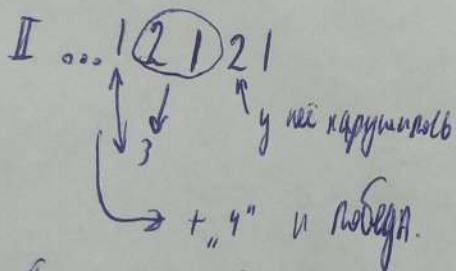 II ... 1 2 1 2 1
3
у неё нарушилось
+ „4" и победа.